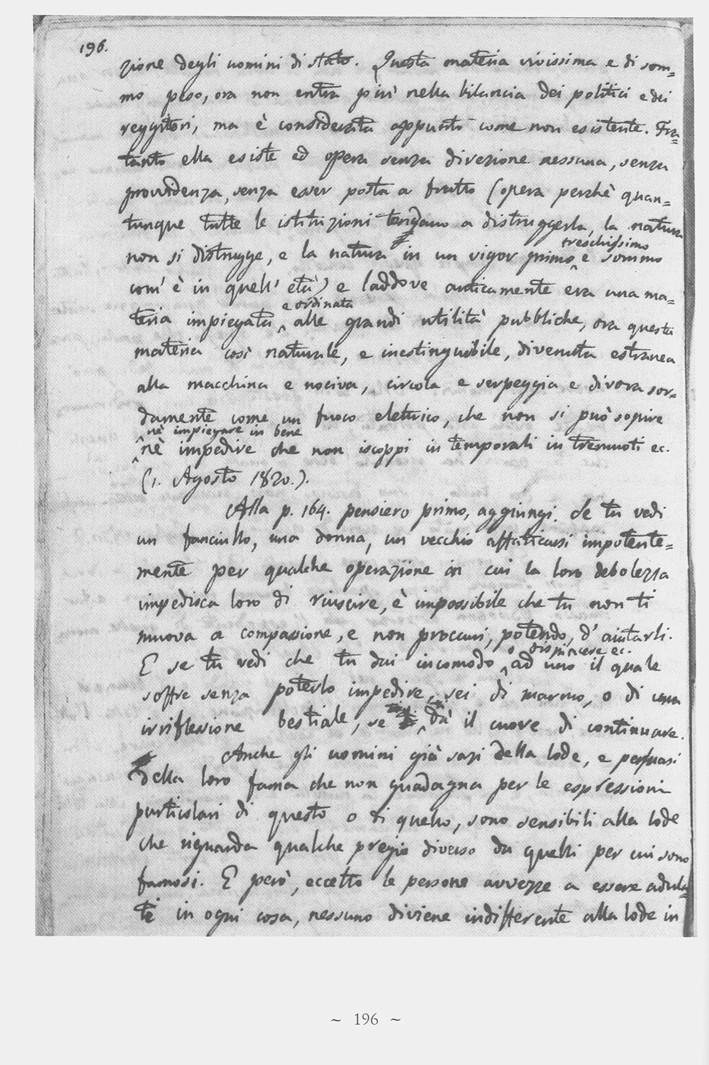 196.
zione degli uomini di stato. Questa materia vivissima e di som=
mo peso, ora non entra più nella bilancia dei politici e dei
reggitori, ma è considerata appunto come non esistente. Fra=
tanto ella esiste ed opera senza direzione nessuna, senza
provvidenza, senza esser posta a frutto (opera perchè quan=
tunque tutte le istituzioni tendano a distruggerla, la natura
non si distrugge, e la natura in un vigor primo freschissimo e sommo
com' è in quell' età) e laddove anticamente era una ma=
teria impiegata e ordinata alle grandi utilità pubbliche, ora questa
materia così naturale, e inestinguibile, divenuta estranea
alla macchina e nociva, circola e serpeggia e divora sor=
damente come un fuoco elettrico, che non si può sopire
nè impiegare in bene nè impedire che non iscoppi in temporali in tremuoti ec.
(1. Agosto 1820.).
Alla p. 164. pensiero primo, aggiungi. Se tu vedi
un fanciullo, una donna, un vecchio affaticarsi impotente=
mente per qualche operazione in cui la loro debolezza
impedisca loro di riuscire, è impossibile che tu non ti
muova a compassione, e non procuri, potendo, d' aiutarli.
E se tu vedi che tu dai incomodo o dispiacere ec. ad uno il quale
soffre senza poterlo impedire, sei di marmo, o di una
irriflessione bestiale, se ti dà il cuore di continuare.
Anche gli uomini già sazi della lode, e persuasi
della loro fama che non guadagna per le espressioni
particolari di questo o di quello, sono sensibili alla lode
che riguarda qualche pregio diverso da quelli per cui sono
famosi. E però, eccetto le persone avvezze a essere adula=
te in ogni cosa, nessuno diviene indifferente alla lode in
~ 196 ~